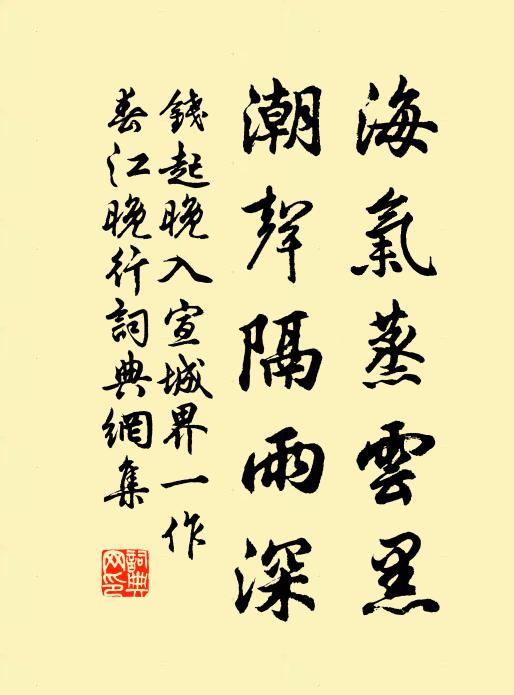 海氣蒸雲黑
潮聲隔雨深
錢起晚入宣城界一作
春江晚行詞典網集
詞典
网印